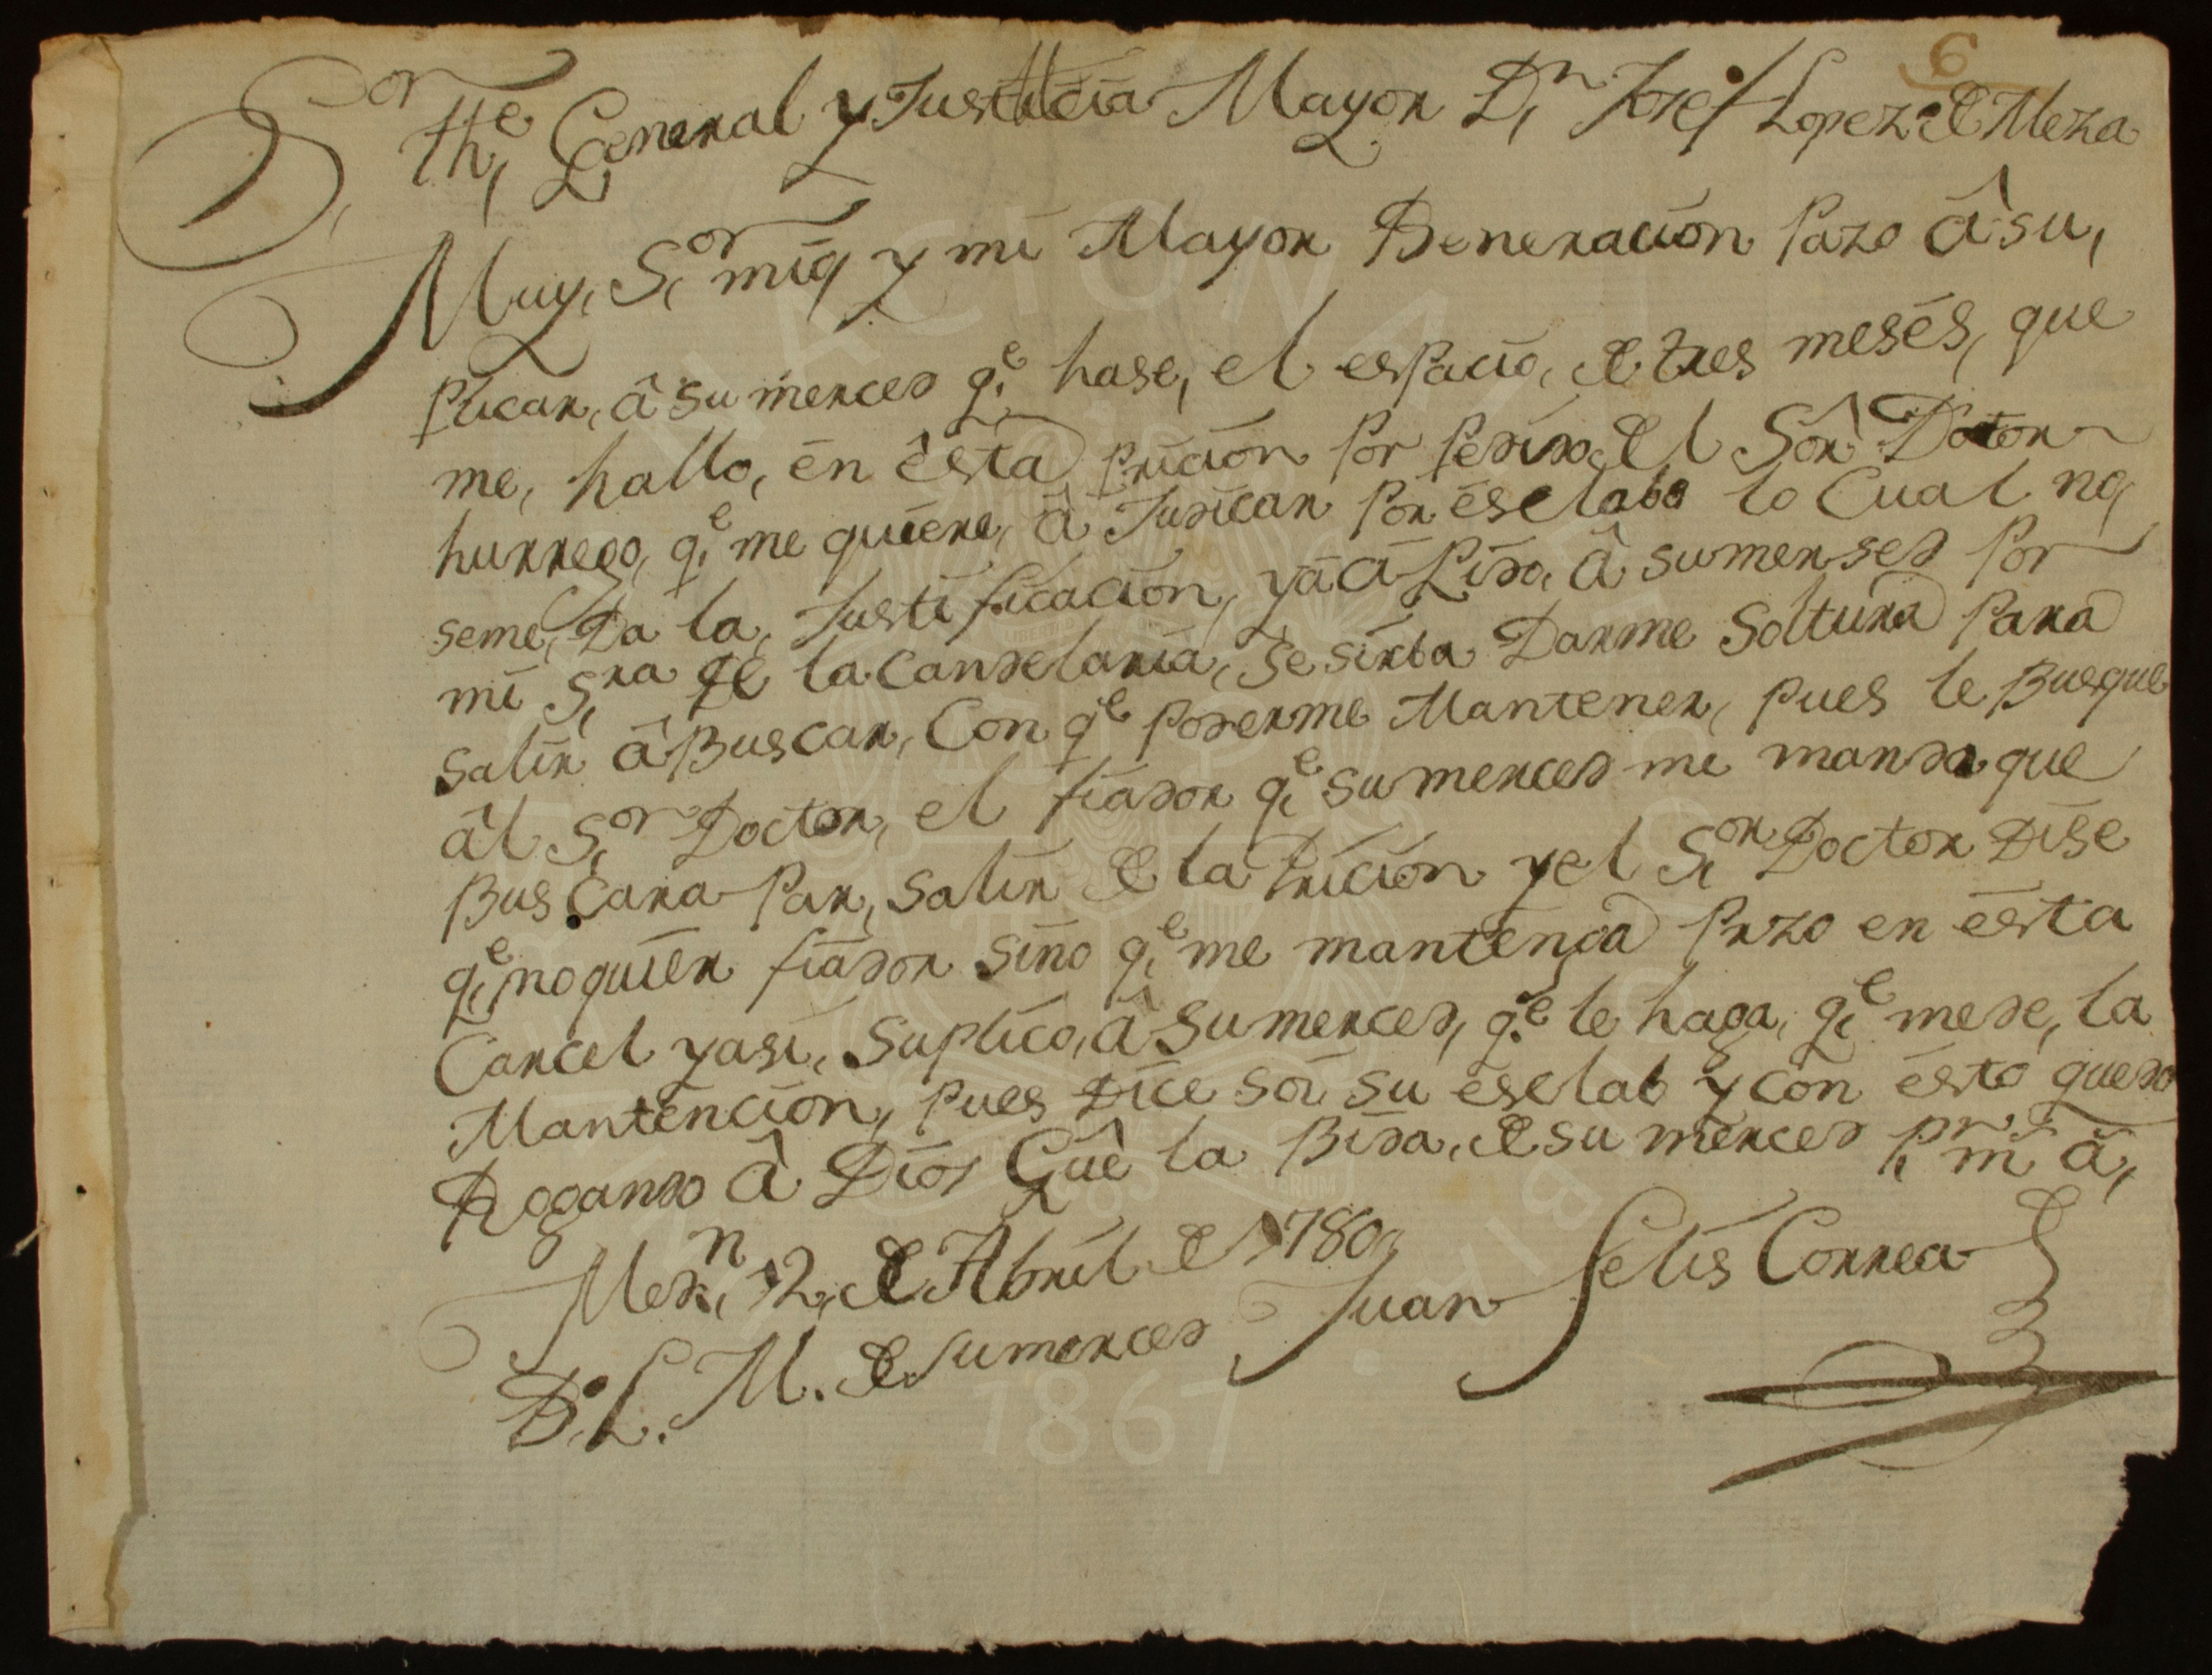 6
Sor. The. General y Justicia Mayor Dn. Josef Lopez de Meza
Muy, Sor. mio, y mi Mayor Beneracion Pazo â su,
plicar, â su merced qe. hase, el espacio, de tres meses, que
me, hallo, en êsta pricion por pedido, del Sôr Doctor
hurrego, qe. me quiere, â Judicar por esclabo lo Cual no,
seme, Da la, Justificacion, y acâ Pido, â su mersed por
mi Sra. de la Candelaria, se sirba Darme Soltura para
salir â Buscar, Con qe. poderme Mantener, pues le Busque
âl Sor. Doctor, el fiador qe. su merced me mando que
Buscara Par, salir de la Pricion y el Sor. Doctor Dise
qe. no quier fiador sino qe. me mantenga Przo en êsta
Carcel y asi, suplico, â su merced, qe. le haga, qe. me de, la
Mantencion, pues Dice soi su esclab y con ésto quedo
Rogando â Dios Guê la Bida, de su merced pr. ms. a,
Medn. 12, de Abril de 1780,
Juan Felis Correa
B. L. M. de su merced
NACIONAL
COLOMBIA
1867